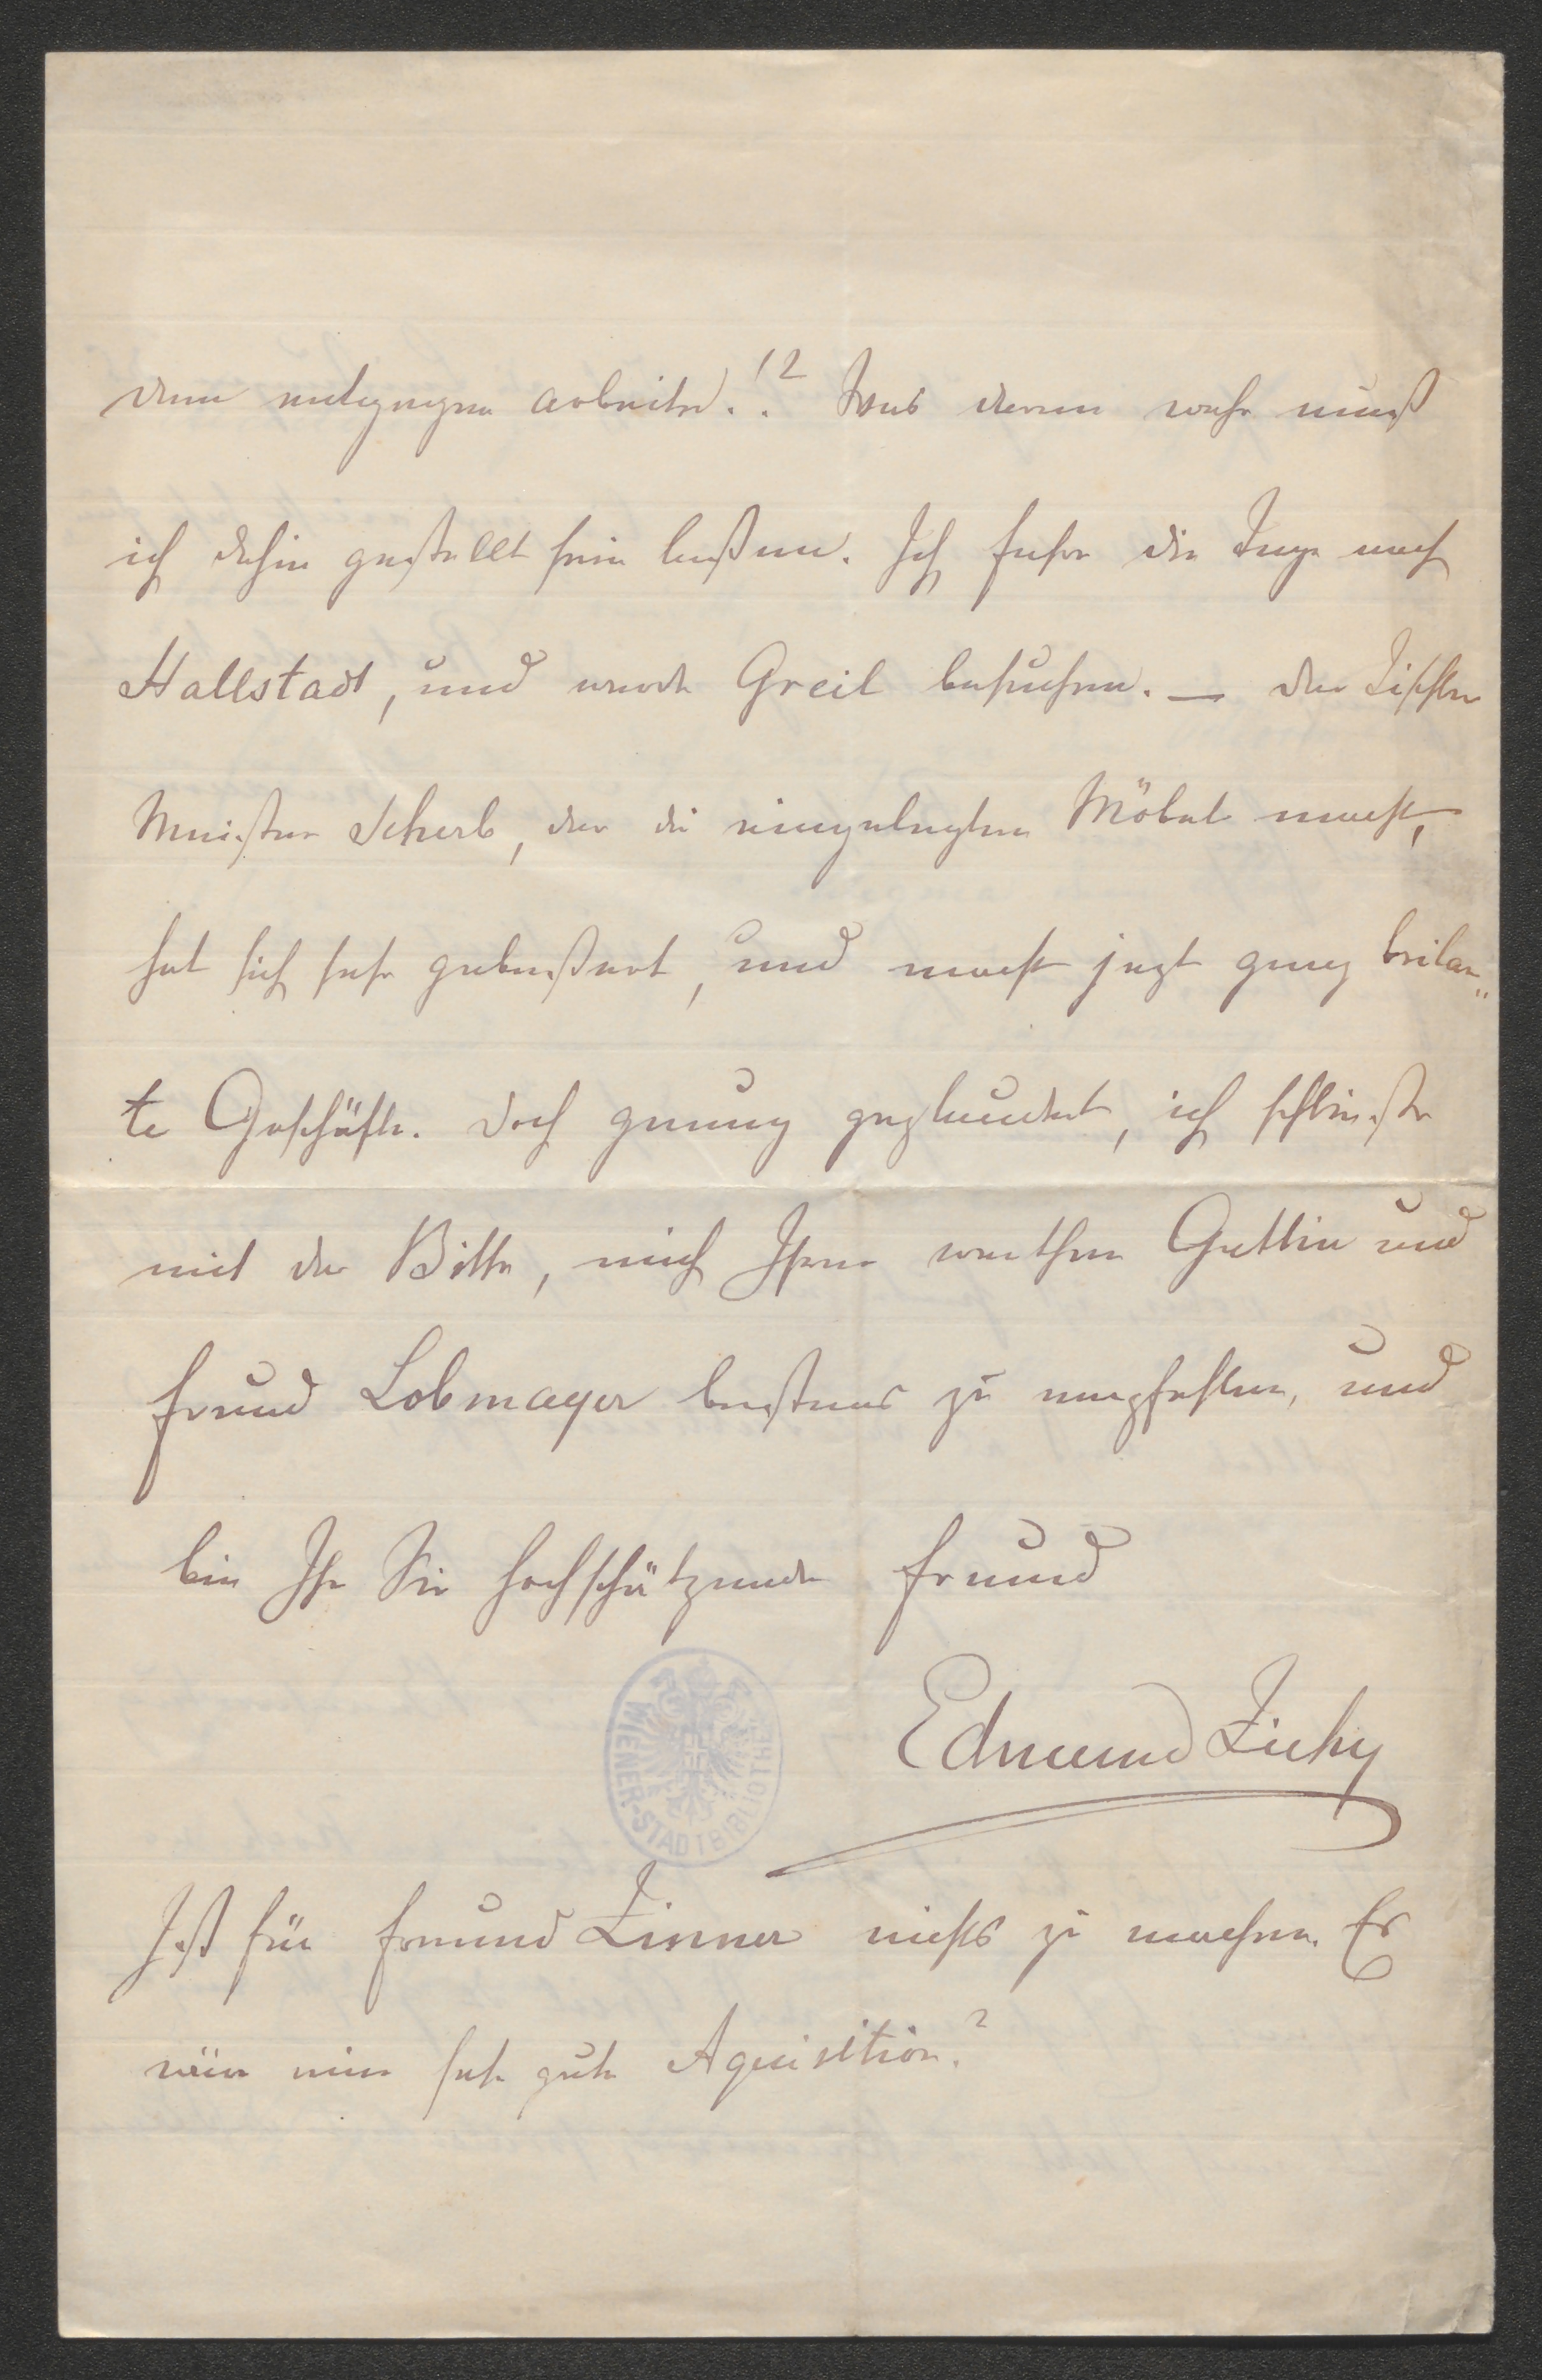 dem entgegen arbeitet.!? Was daran wahr muß
ich dahin gestellt sein laßen. Ich fahre die Tage nach
Hallstadt, und werde Greil besuchen. — der Tischler
Meister Scherb, der die eingelegten Möbel macht,
hat sich sehr gebeßert, und macht jezt ganz brilan„
te Geschäfte. Doch genug geplaudert, ich schließe
mit der Bitte, mich Ihrer werthen Gattin und
Freund Lobmayer bestens zu empfehlen, und
bin Ihr Sie hochschätzender Freund
Edmund Zichy
WIENER-STADTBIBLIOTHEK
Ist für Freund Zinner nichts zu machen. Er
wäre eine sehr gute Aquisition?